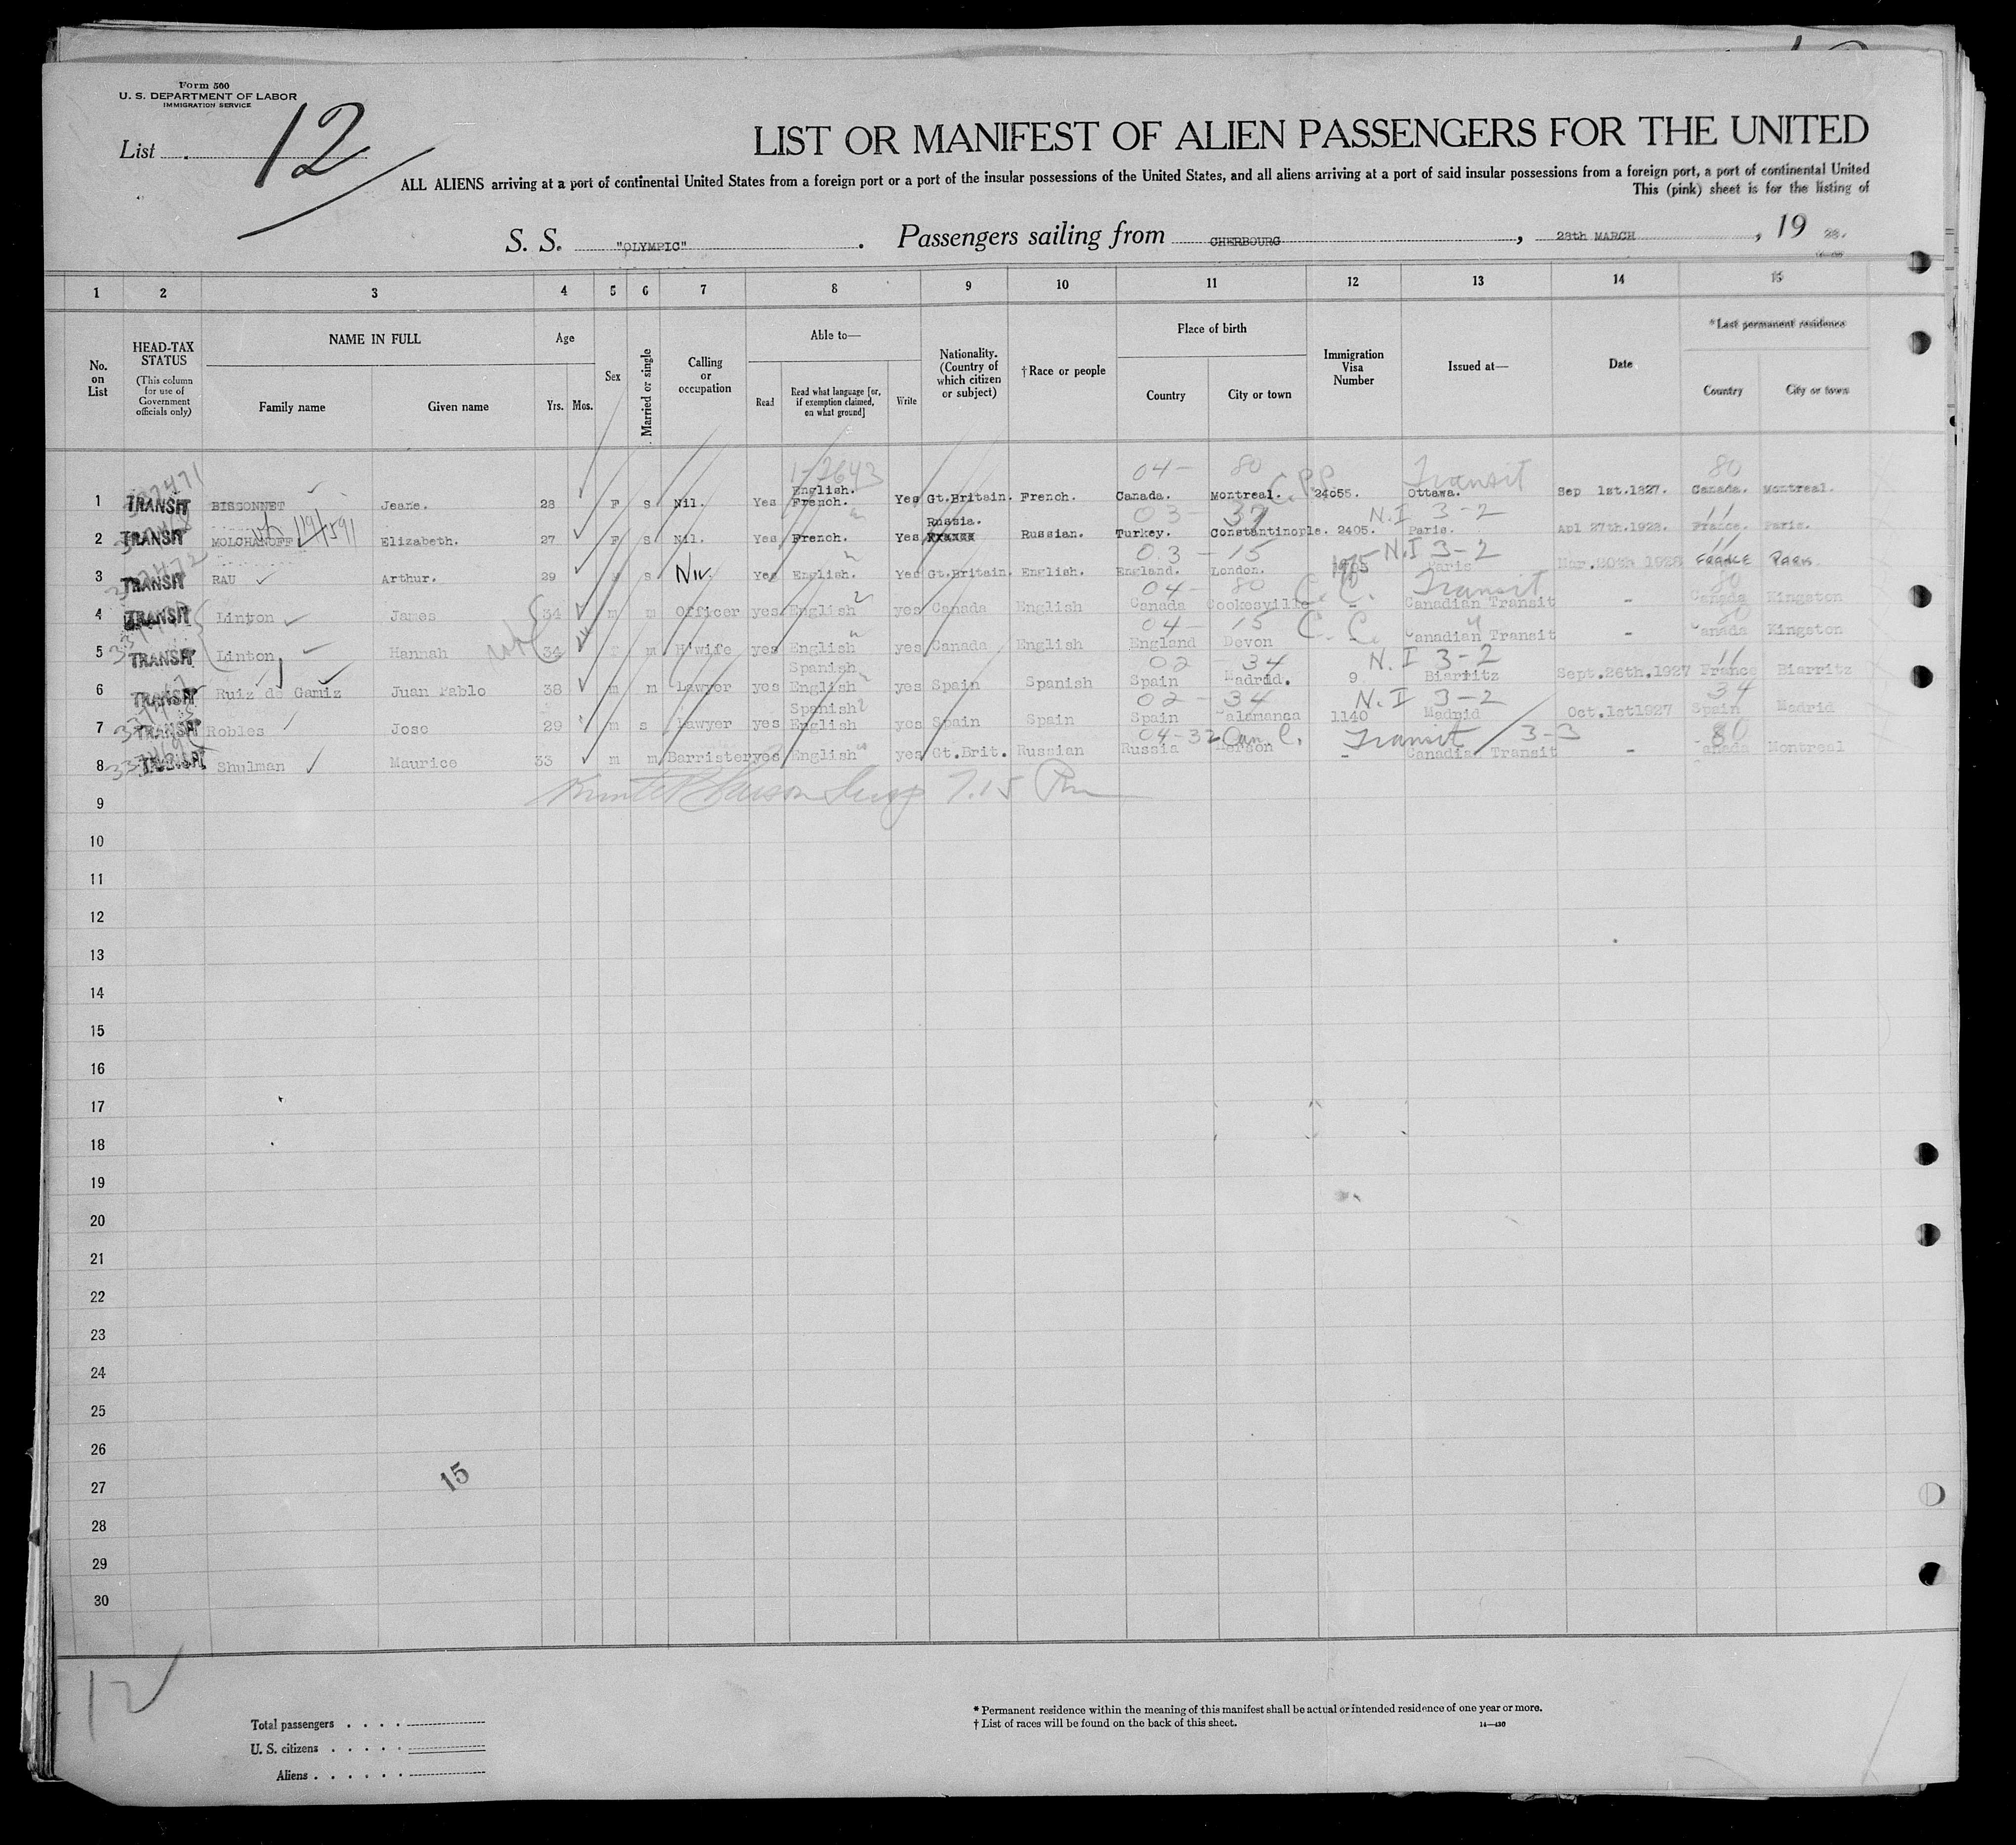 Form 500
U. S. DEPARTMENT OF LABOR
IMMIGRATION SERVICE
List 12
LIST OR MANIFEST OF ALIEN PASSENGERS FOR THE UNITED
ALL ALIENS arriving at a port of continental United States from a foreign port or a port of the insular possessions of the United States, and all aliens arriving at a port of said insular possessions from a foreign port, a port of continental United
This (pink) sheet is for the listing of
S. S. "OLYMPIC" . Passengers sailing from CHERBOURG , 28th MARCH , 19 28.
1 2 3 4 5 6 7 8 9 10 11 12 13 14 15
No. on List
HEAD-TAX STATUS
(This column for use of Government officials only)
NAME IN FULL
Family name Given name
Age
Yrs. Mos.
Sex
Married or single
Calling or occupation
Able to—
Read
Read what language [or, if exemption claimed, on what ground]
Write
Nationality. (Country of which citizen or subject)
† Race or people
Place of birth
Country City or town
Immigration Visa Number
Issued at—
Date
* Last permanent residence
Country City or town
1-2643 04- 80 C.P.P. Transit 80
1 TRANSIT BISSONNET Jeane. 28 F S Nil. Yes English. French. Yes Gt.Britain. French. Canada. Montreal. 24055. Ottawa. Sep 1st.1927. Canada. Montreal.
03- 37 N.I 3-2 11
2 TRANSIT MOLCHANOFF Elizabeth. 27 F S Nil. Yes French. Yes Russia. Russian. Turkey. Constantinople. 2405. Paris. Apl 27th.1928. France. Paris.
03-15 N.I 3-2 11
3 TRANSIT RAU Arthur. 29 S Yes English. Yes Gt.Britain. English. England. London. Paris Mar.20th 1928 FRANCE PARK
04- 80 C.C. Transit 80
4 TRANSIT Linton James 34 m m Officer yes English yes Canada English Canada Cookesville - Canadian Transit - Canada Kingston
04- 15 C.C. 80
5 TRANSIT Linton Hannah 34 m H'wife yes English yes Canada English England Devon - Canadian Transit - Canada Kingston
02 - 34 N.I 3-2 11
6 TRANSIT Ruiz de Gamiz Juan Pablo 38 m m Lawyer yes Spanish English yes Spain Spanish Spain Madrid. 9 Biarritz Sept.26th.1927 France Biarritz
02 - 34 N.I 3-2 34
7 TRANSIT Robles Jose 29 m s Lawyer yes Spanish English yes Spain Spain Spain Salamanca 1140 Madrid Oct.1st1927 Spain Madrid
04-32 Can C. Transit 3-3 80
8 TRANSIT Shulman Maurice 33 m m Barrister yes English yes Gt.Brit. Russian Russia - Canadian Transit - Canada Montreal
7.15 Pm
9
10
11
12
13
14
15
16
17
18
19
20
21
22
23
24
25
26
27
28
29
30
15
12
Total passengers . . . .
U. S. citizens . . . . .
Aliens . . . . . .
* Permanent residence within the meaning of this manifest shall be actual or intended residence of one year or more.
† List of races will be found on the back of this sheet.
14—430